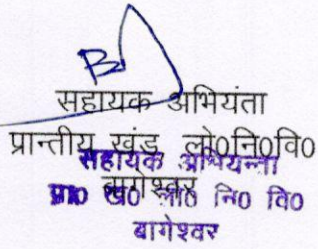 सहायक अभियंता
प्रान्तीय खंड लो०नि०वि०
बागेश्वर
सहायक अभियन्ता
प्रा० खं० लो० नि० वि०
बागेश्वर